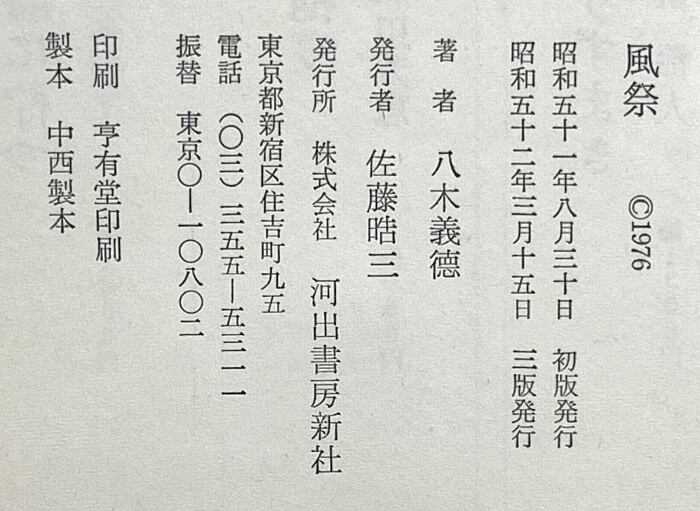 風祭 ©1976
昭和五十一年八月三十日 初版発行
昭和五十二年三月十五日 三版発行
著者 八木義德
発行者 佐藤晧三
発行所 株式会社 河出書房新社
東京都新宿区住吉町九五
電話 (〇三)三五五―五三一一
振替 東京〇―一〇八〇二
印刷 亨有堂印刷
製本 中西製本